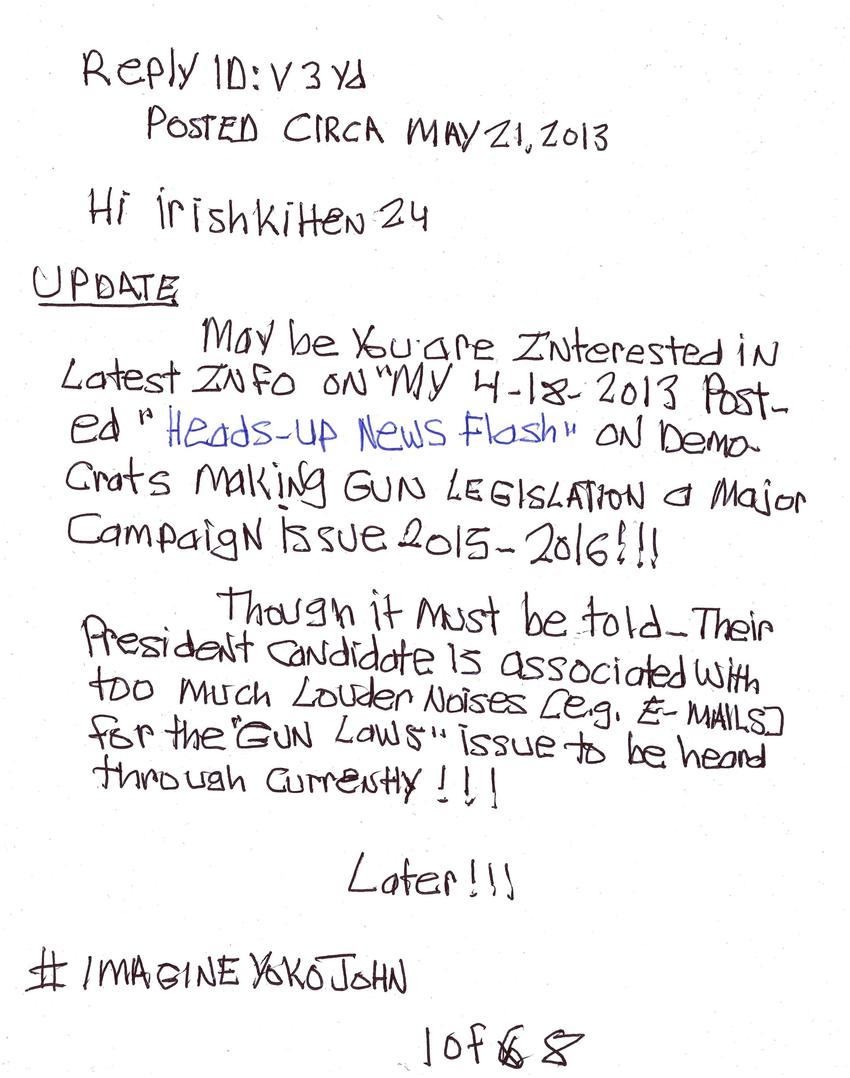 Reply ID: V3Yd
POSTED CIRCA MAY 21, 2013
Hi irishkitten 24
UPDATE
May be You are INterested iN
Latest INFO ON "MY 4-18-2013 Post-
ed "Heads-up News Flash" ON Demo-
Crats Making GUN LEGISLATION a Major
Campaign issue 2015-2016!!!
Though it Must be told - Their
President Candidate is associated with
too much Louder Noises [e.g. E-MAILS]
for the "GUN Laws" issue to be heard
through currently!!!
Later!!!
#IMAGINEYOKOJOHN
1 of 8